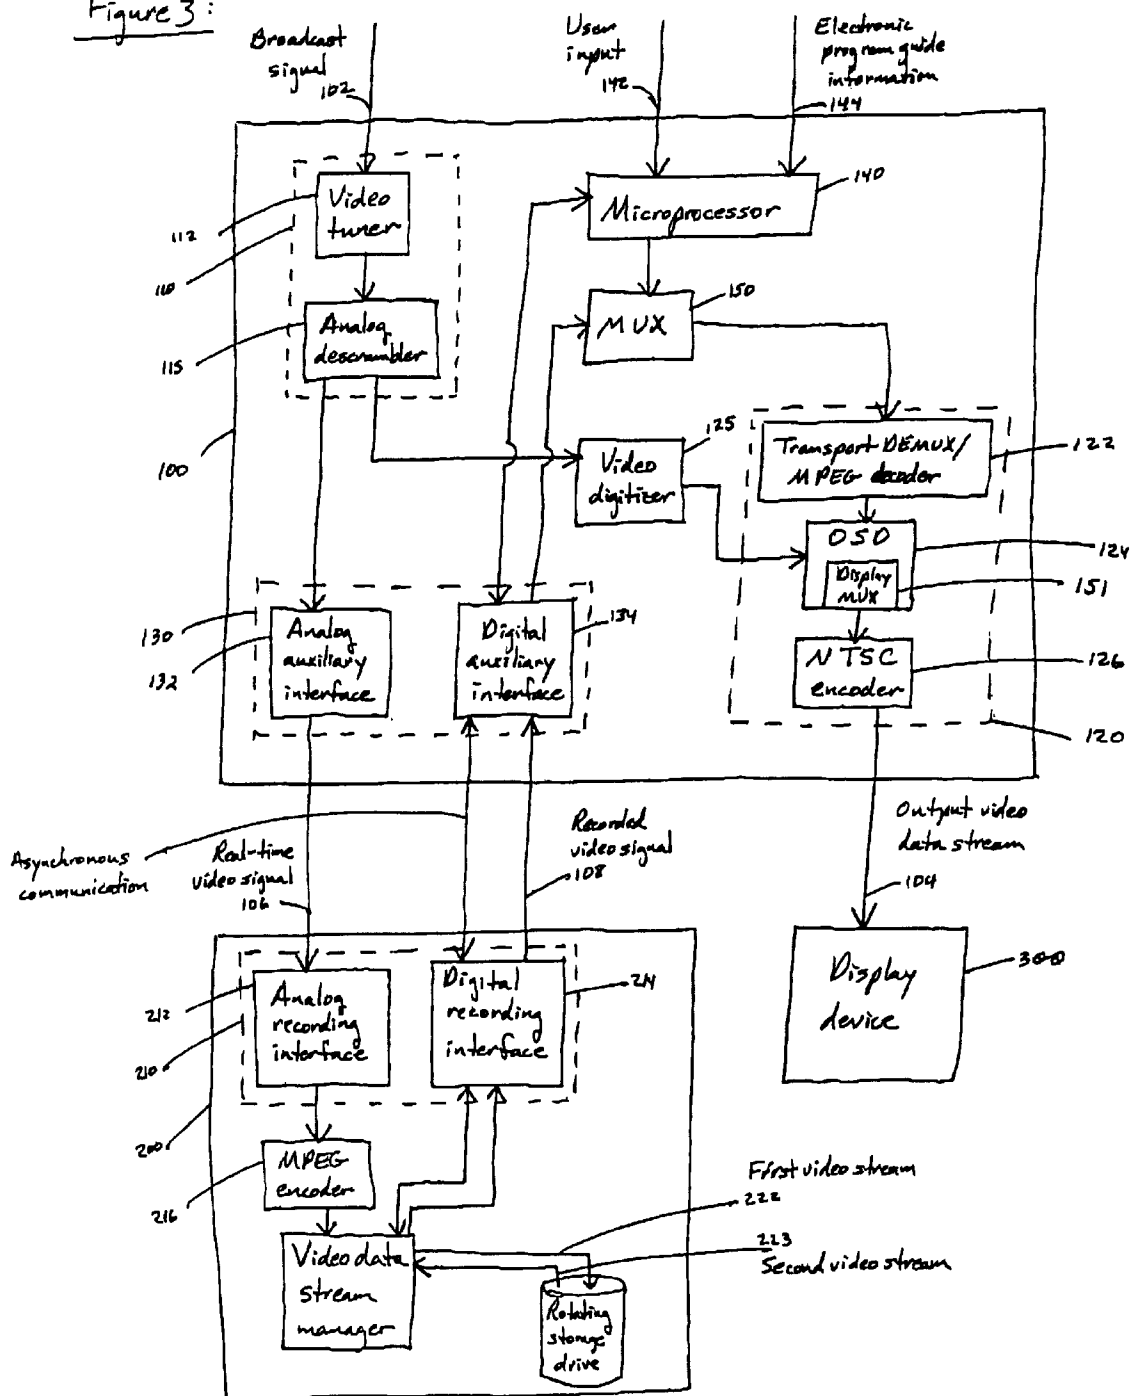 Figure 3:
Broadcast
signal
102
User
input
142
Electronic
program guide
information
144
Video
tuner
112
110
Analog
descrambler
115
Microprocessor
140
MUX
150
100
Video
digitizer
125
Transport DEMUX/
MPEG decoder
122
OSD
124
Display
MUX
151
NTSC
encoder
126
120
130
132
Analog
auxiliary
interface
Digital
auxiliary
interface
134
Asynchronous
communication
Real-time
video signal
106
Recorded
video signal
108
Output video
data stream
104
Display
device
300
212
210
Analog
recording
interface
Digital
recording
interface
214
200
MPEG
encoder
216
Video data
stream
manager
First video stream
222
223
Second video stream
Rotating
storage
drive